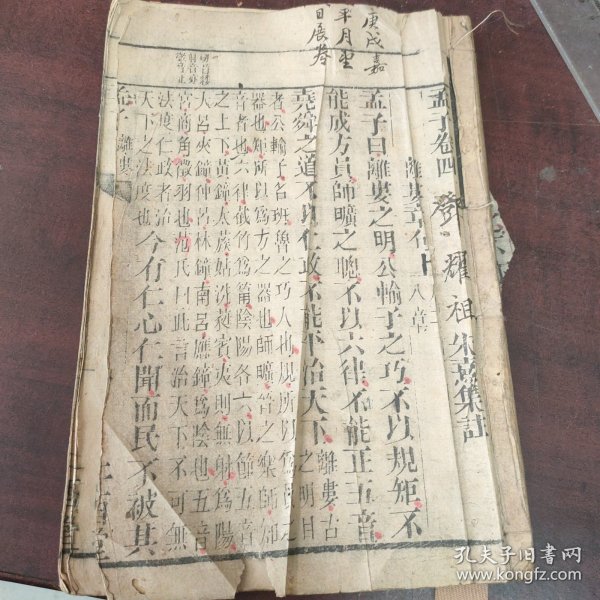 庚戌嘉
平月望
日展卷
孟子卷四
耀祖
朱熹集註
離婁章句上
八章
孟子曰離婁之明公輸子之巧不以規矩不
能成方員師曠之聰不以六律不能正五音
堯舜之道不以仁政不能平治天下
離婁古
之明目
者公輸子名班魯之巧人也規所以爲員之
器也矩所以爲方之器也師曠晉之樂師知
音者也六律截竹爲筩陰陽各六以節五音
之上下黃鐘大蔟姑洗蕤賓夷則無射爲陽
大呂夾鐘仲呂林鐘南呂應鐘爲陰也五音
宮商角徵羽也范氏曰此言治天下不可無
法度仁政者治
天下之法度也
今有仁心仁聞而民不被其
離婁
孔夫子旧书网
www.kongfz.com